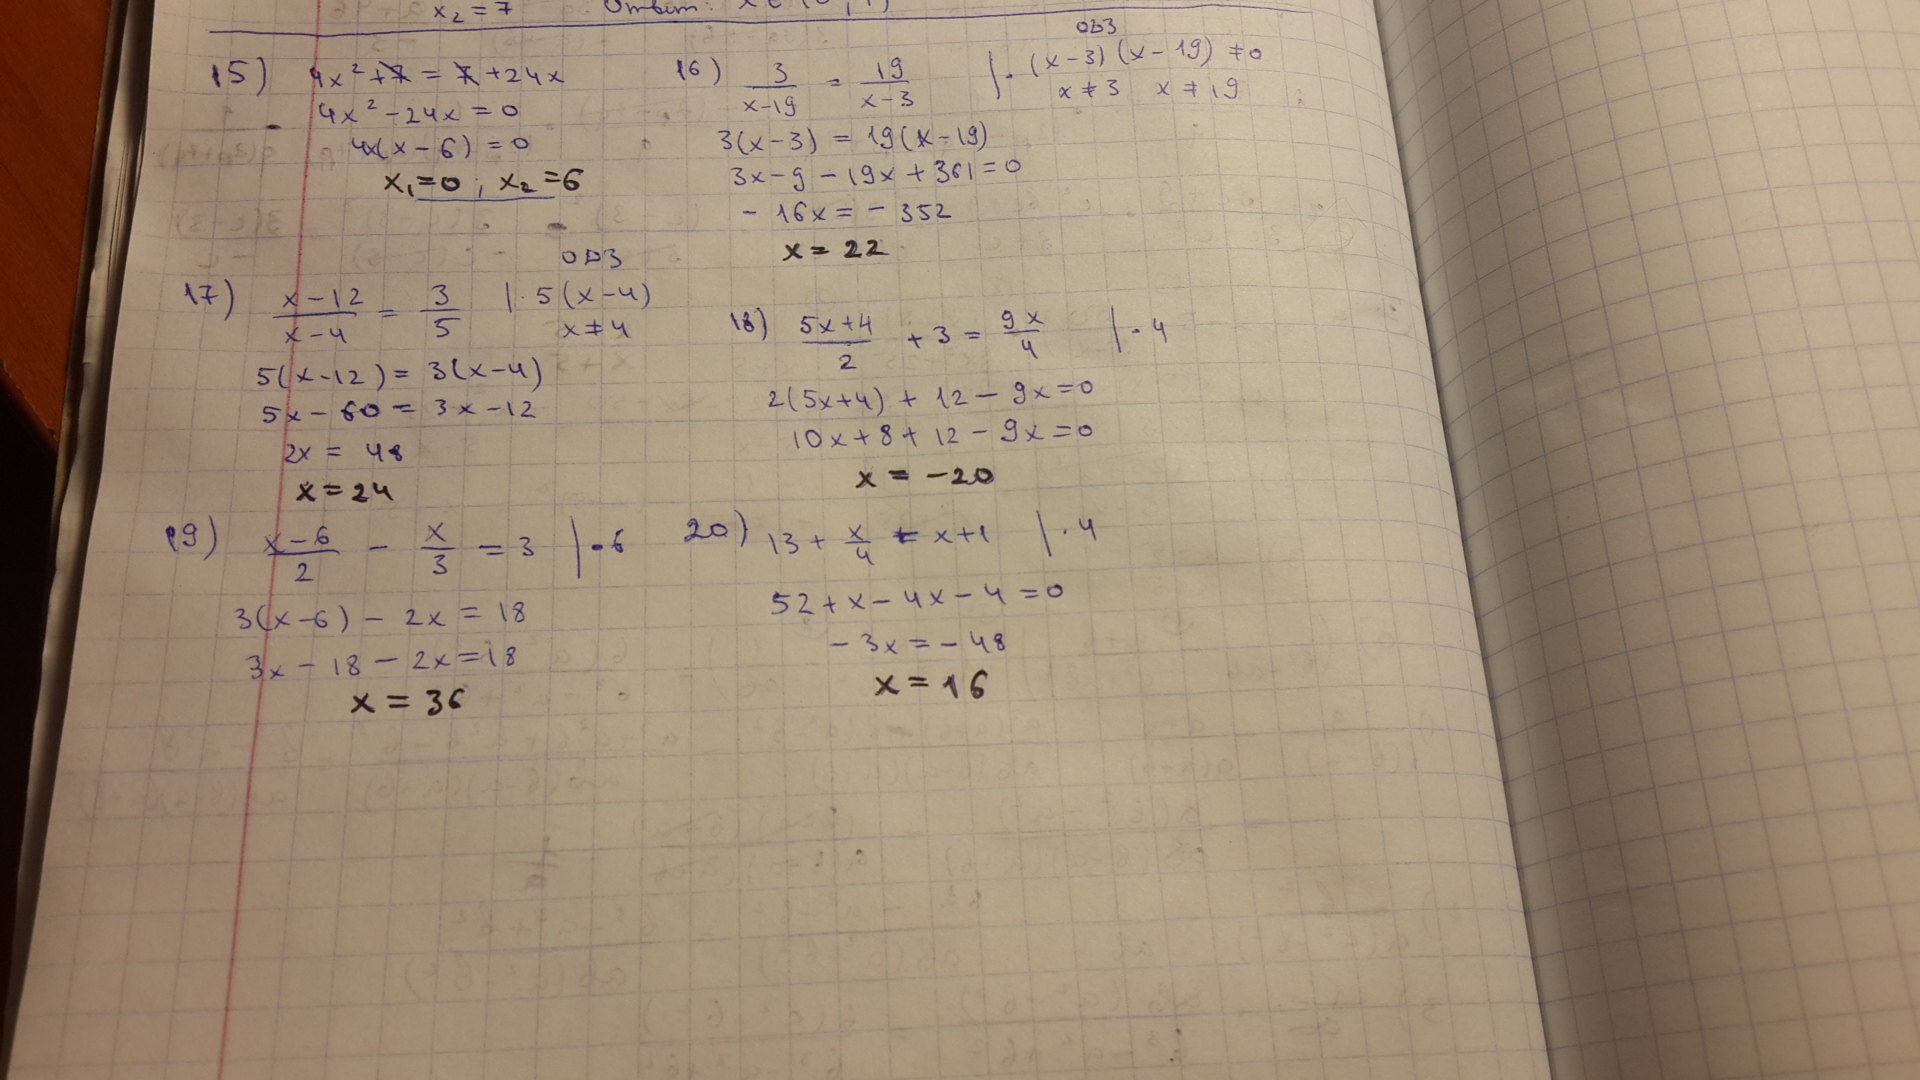 x₂ = 7 Ответ:
15) 4x² + 7 = 7 + 24x
4x² - 24x = 0
4x(x - 6) = 0
x₁ = 0 ; x₂ = 6
16) 3/(x-19) = 19/(x-3) | · (x-3)(x-19) ≠ 0
ОДЗ
x ≠ 3 x ≠ 19
3(x-3) = 19(x-19)
3x - 9 - 19x + 361 = 0
- 16x = - 352
x = 22
17) (x-12)/(x-4) = 3/5 | · 5(x-4)
ОДЗ
x ≠ 4
5(x-12) = 3(x-4)
5x - 60 = 3x - 12
2x = 48
x = 24
18) (5x+4)/2 + 3 = 9x/4 | · 4
2(5x+4) + 12 - 9x = 0
10x + 8 + 12 - 9x = 0
x = -20
19) (x-6)/2 - x/3 = 3 | · 6
3(x-6) - 2x = 18
3x - 18 - 2x = 18
x = 36
20) 13 + x/4 = x+1 | · 4
52 + x - 4x - 4 = 0
- 3x = - 48
x = 16